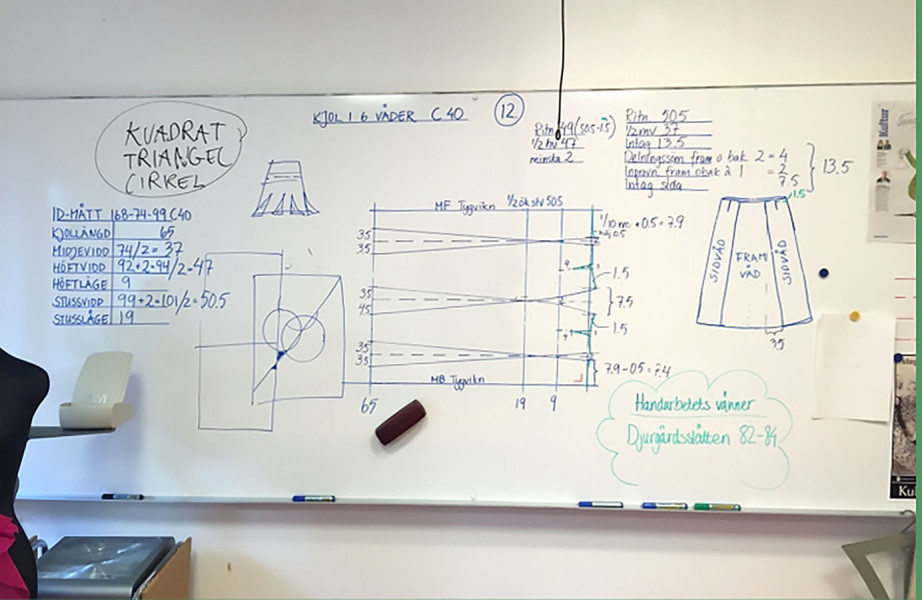 KJOL I 6 VÅDER C 40
12.
KVADRAT
TRIANGEL
CIRKEL
ID-MÅTT 168-74-99 C40
KJOLLÄNGD 65
MIDJEVIDD 74/2 = 37
HÖFTVIDD 92+2=94/2=47
HÖFTLÄGE 9
STUSSVIDD 99+2=101/2=50.5
STUSSLÄGE 19
MF Tygvikn 1/2 ök stv 505
35
35
35
45
35
35
MB Tygvikn
65
19
9
1/10 mv +0.5=7.9
1.5
7.5
1.5
7.9-05=7.4
Ritn 49(505-1.5)
1/2 hv 47
minska 2
Ritn 50.5
1/2 mv 37
Intag 13.5
Delningssöm fram o bak 2 = 4
Inprovn fram o bak à 1 = 2
Intag sida 7.5
13.5
1.5
SIDVÅD
FRAM
VÅD
SIDVÅD
3.5
Handarbetets vänner
Djurgårdsslätten 82-84
Kultur
Ku